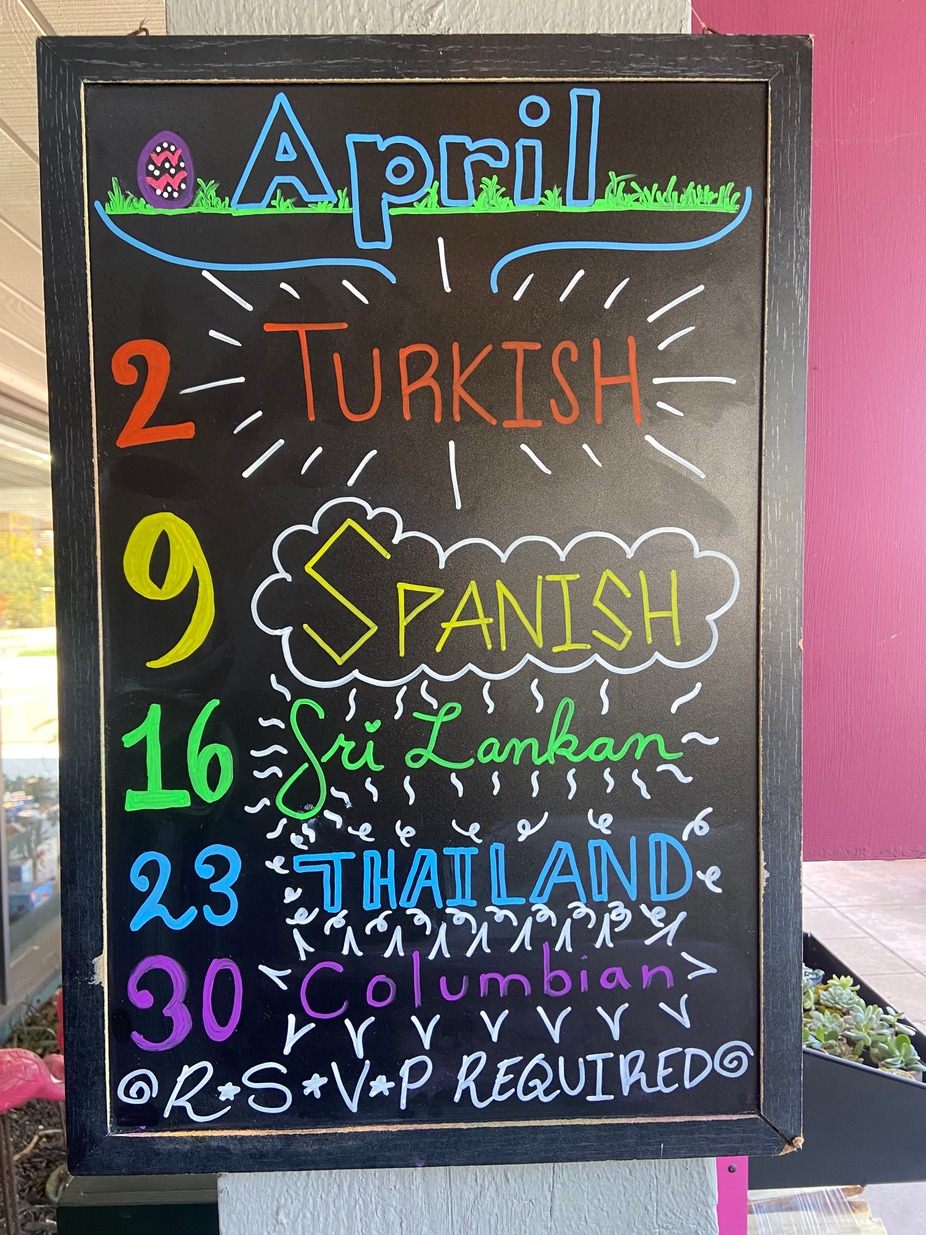 April
2 TURKISH
9 SPANISH
16 Sri Lankan
23 THAILAND
30 Columbian
R*S*V*P REQUIRED